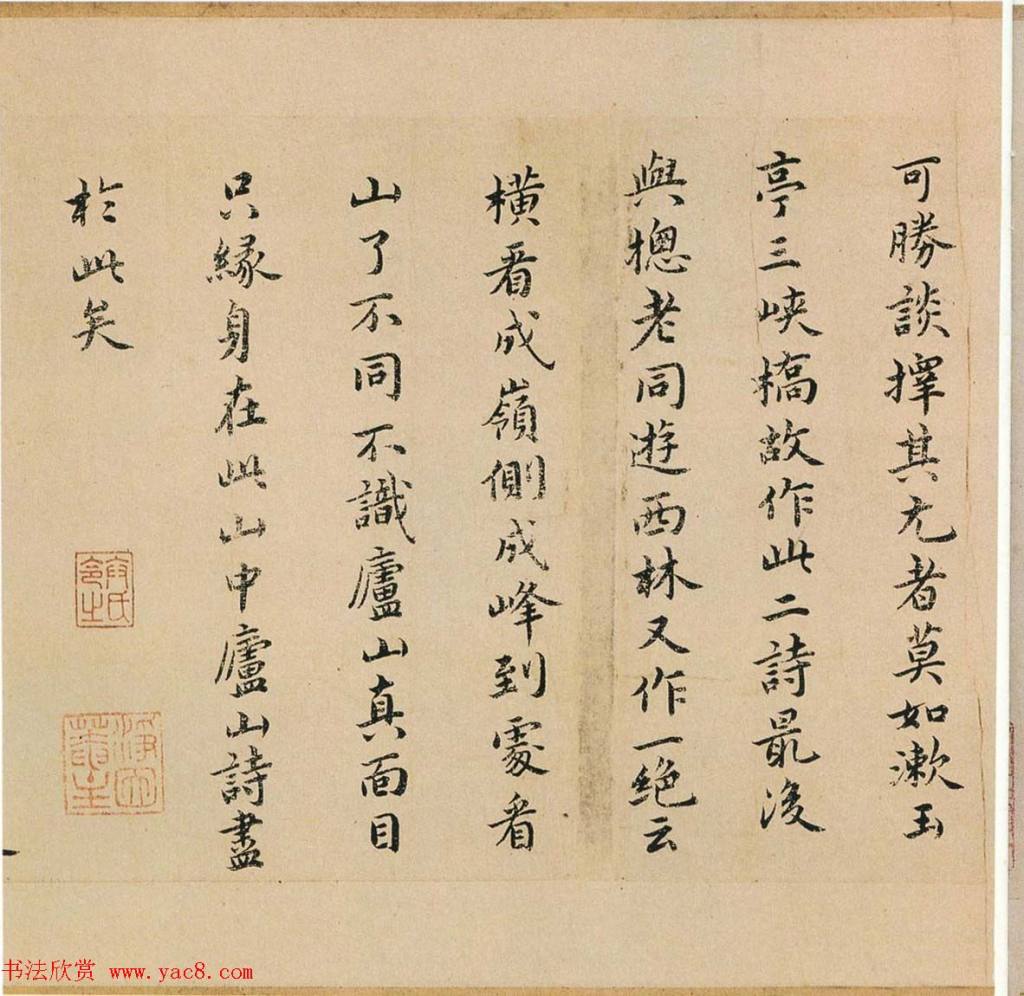 可勝談擇其尤者莫如漱玉
亭三峽橋故作此二詩最後
與摠老同遊西林又作一絕云
橫看成嶺側成峰到處看
山了不同不識廬山真面目
只緣身在此山中廬山詩盡
於此矣
书法欣赏 www.yac8.com